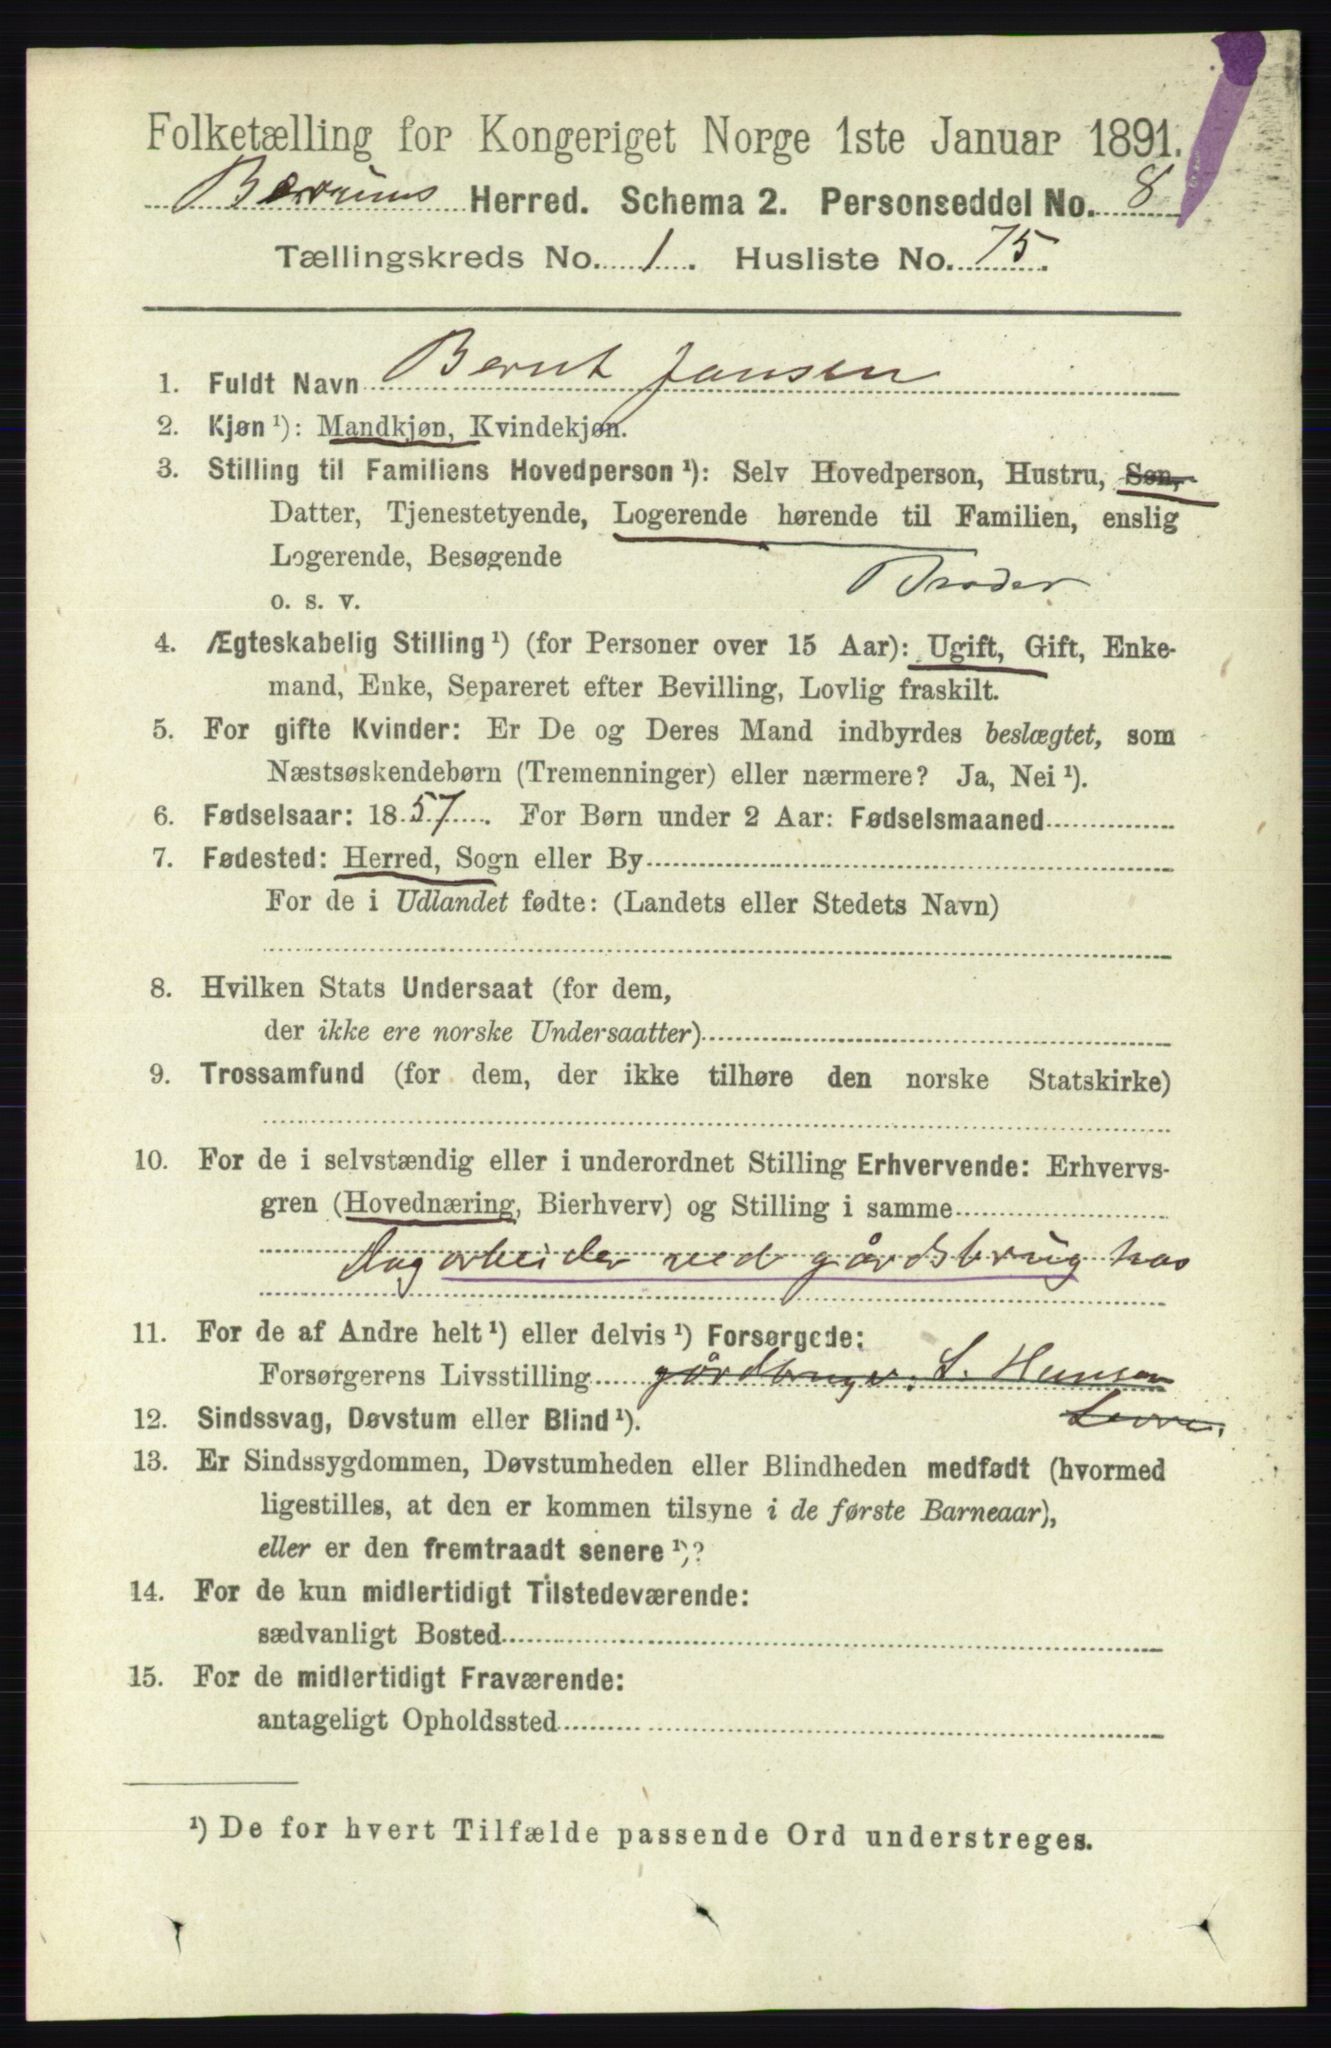 Folketælling for Kongeriget Norge 1ste Januar 1891.
Berums Herred. Schema 2. Personseddel No. 8
Tællingskreds No. 1. Husliste No. 75.
1. Fuldt Navn Bernt Jansen
2. Kjøn ¹): Mandkjøn, Kvindekjøn.
3. Stilling til Familiens Hovedperson ¹): Selv Hovedperson, Hustru, Søn,
Datter, Tjenestetyende, Logerende hørende til Familien, enslig
Logerende, Besøgende
Broder
o. s. v.
4. Ægteskabelig Stilling ¹) (for Personer over 15 Aar): Ugift, Gift, Enke-
mand, Enke, Separeret efter Bevilling, Lovlig fraskilt.
5. For gifte Kvinder: Er De og Deres Mand indbyrdes beslægtet, som
Næstsøskendebørn (Tremenninger) eller nærmere? Ja, Nei ¹).
6. Fødselsaar: 1857. For Børn under 2 Aar: Fødselsmaaned
7. Fødested: Herred, Sogn eller By
For de i Udlandet fødte: (Landets eller Stedets Navn)
8. Hvilken Stats Undersaat (for dem,
der ikke ere norske Undersaatter)
9. Trossamfund (for dem, der ikke tilhøre den norske Statskirke)
10. For de i selvstændig eller i underordnet Stilling Erhvervende: Erhvervs-
gren (Hovednæring, Bierhverv) og Stilling i samme
Dagarbeider ved gårdsbrug hos
11. For de af Andre helt ¹) eller delvis ¹) Forsørgede:
Forsørgerens Livsstilling gårdbruger, L. Hansen
12. Sindssvag, Døvstum eller Blind ¹).
13. Er Sindssygdommen, Døvstumheden eller Blindheden medfødt (hvormed
ligestilles, at den er kommen tilsyne i de første Barneaar),
eller er den fremtraadt senere ¹)?
14. For de kun midlertidigt Tilstedeværende:
sædvanligt Bosted
15. For de midlertidigt Fraværende:
antageligt Opholdssted
¹) De for hvert Tilfælde passende Ord understreges.